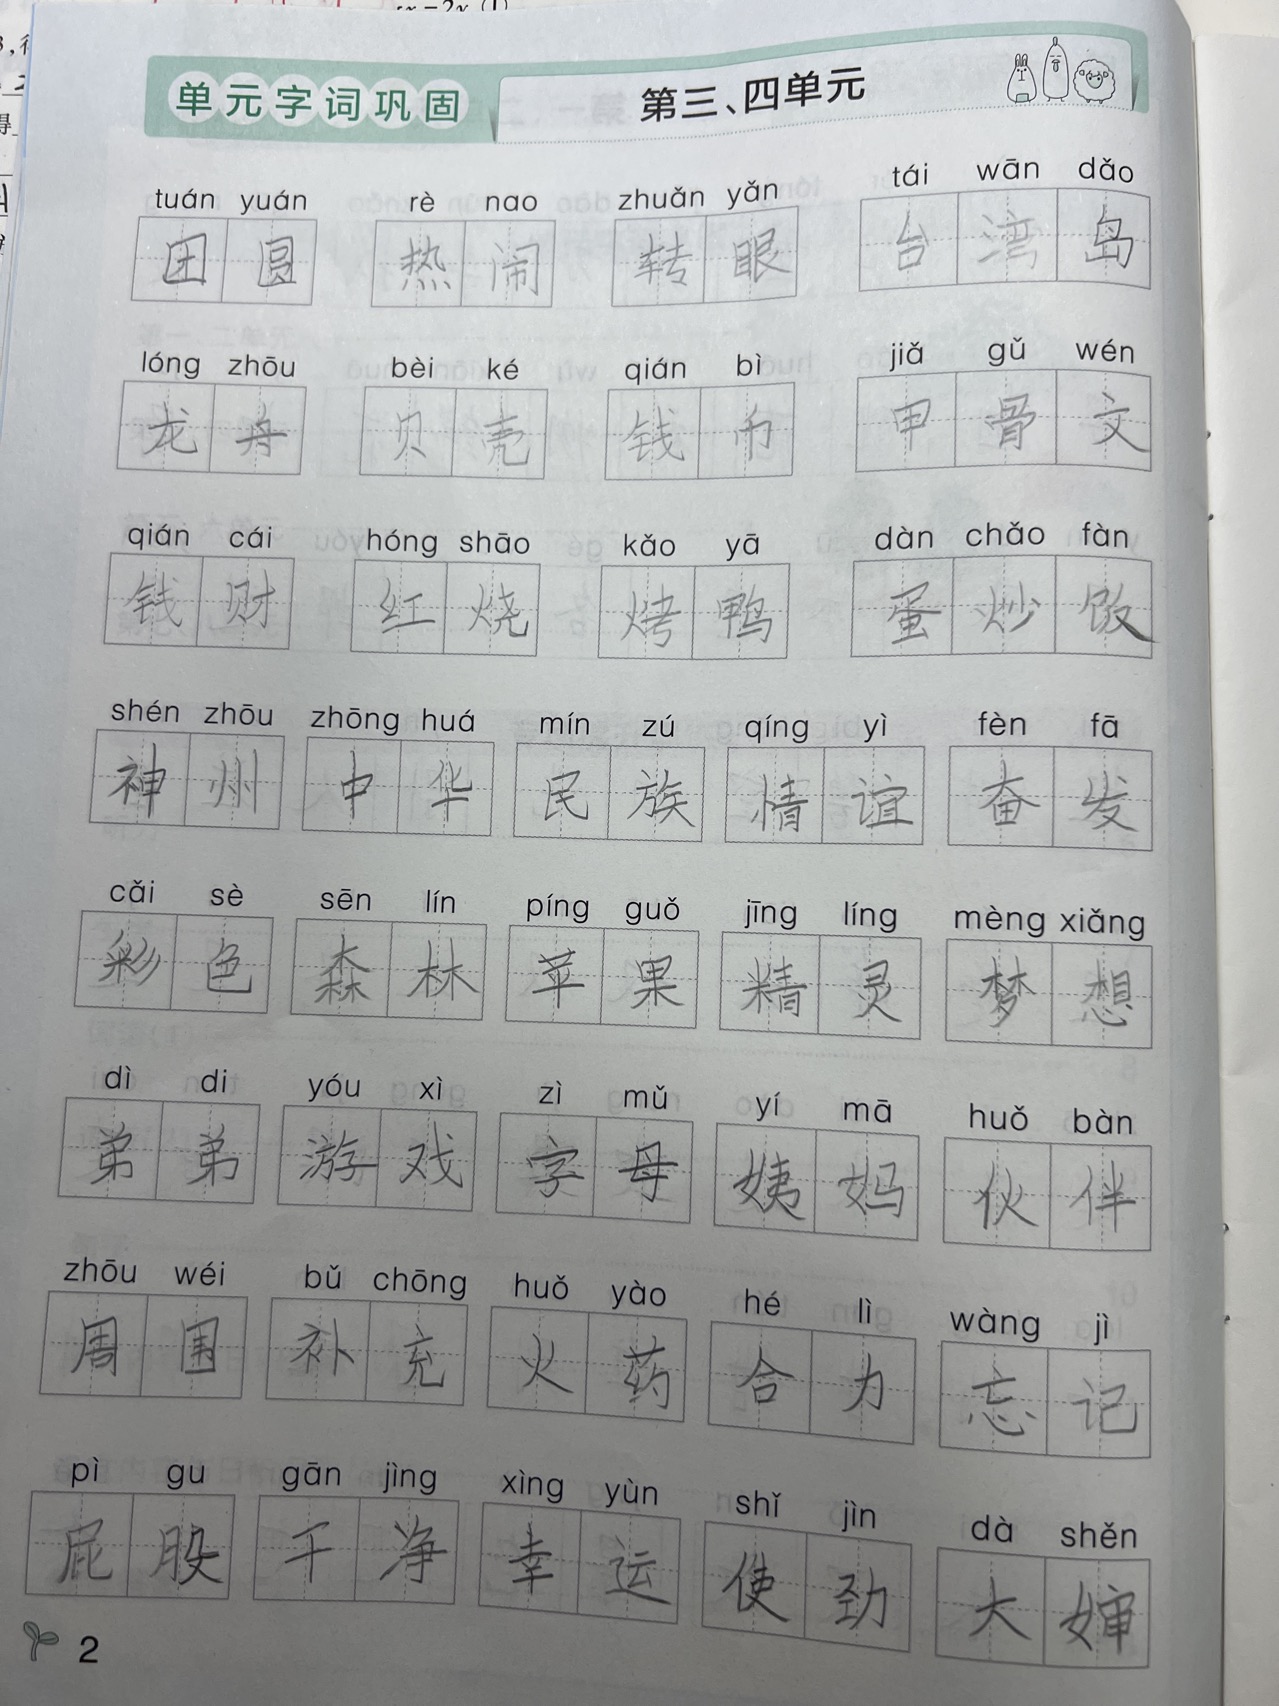 单元字词巩固 第三、四单元
tuán yuán rè nao zhuǎn yǎn tái wān dǎo
团圆 热闹 转眼 台湾岛
lóng zhōu bèi ké qián bì jiǎ gǔ wén
龙舟 贝壳 钱币 甲骨文
qián cái hóng shāo kǎo yā dàn chǎo fàn
钱财 红烧 烤鸭 蛋炒饭
shén zhōu zhōng huá mín zú qíng yì fèn fā
神州 中华 民族 情谊 奋发
cǎi sè sēn lín píng guǒ jīng líng mèng xiǎng
彩色 森林 苹果 精灵 梦想
dì di yóu xì zì mǔ yí mā huǒ bàn
弟弟 游戏 字母 姨妈 伙伴
zhōu wéi bǔ chōng huǒ yào hé lì wàng jì
周围 补充 火药 合力 忘记
pì gu gān jìng xìng yùn shǐ jìn dà shěn
屁股 干净 幸运 使劲 大婶
2